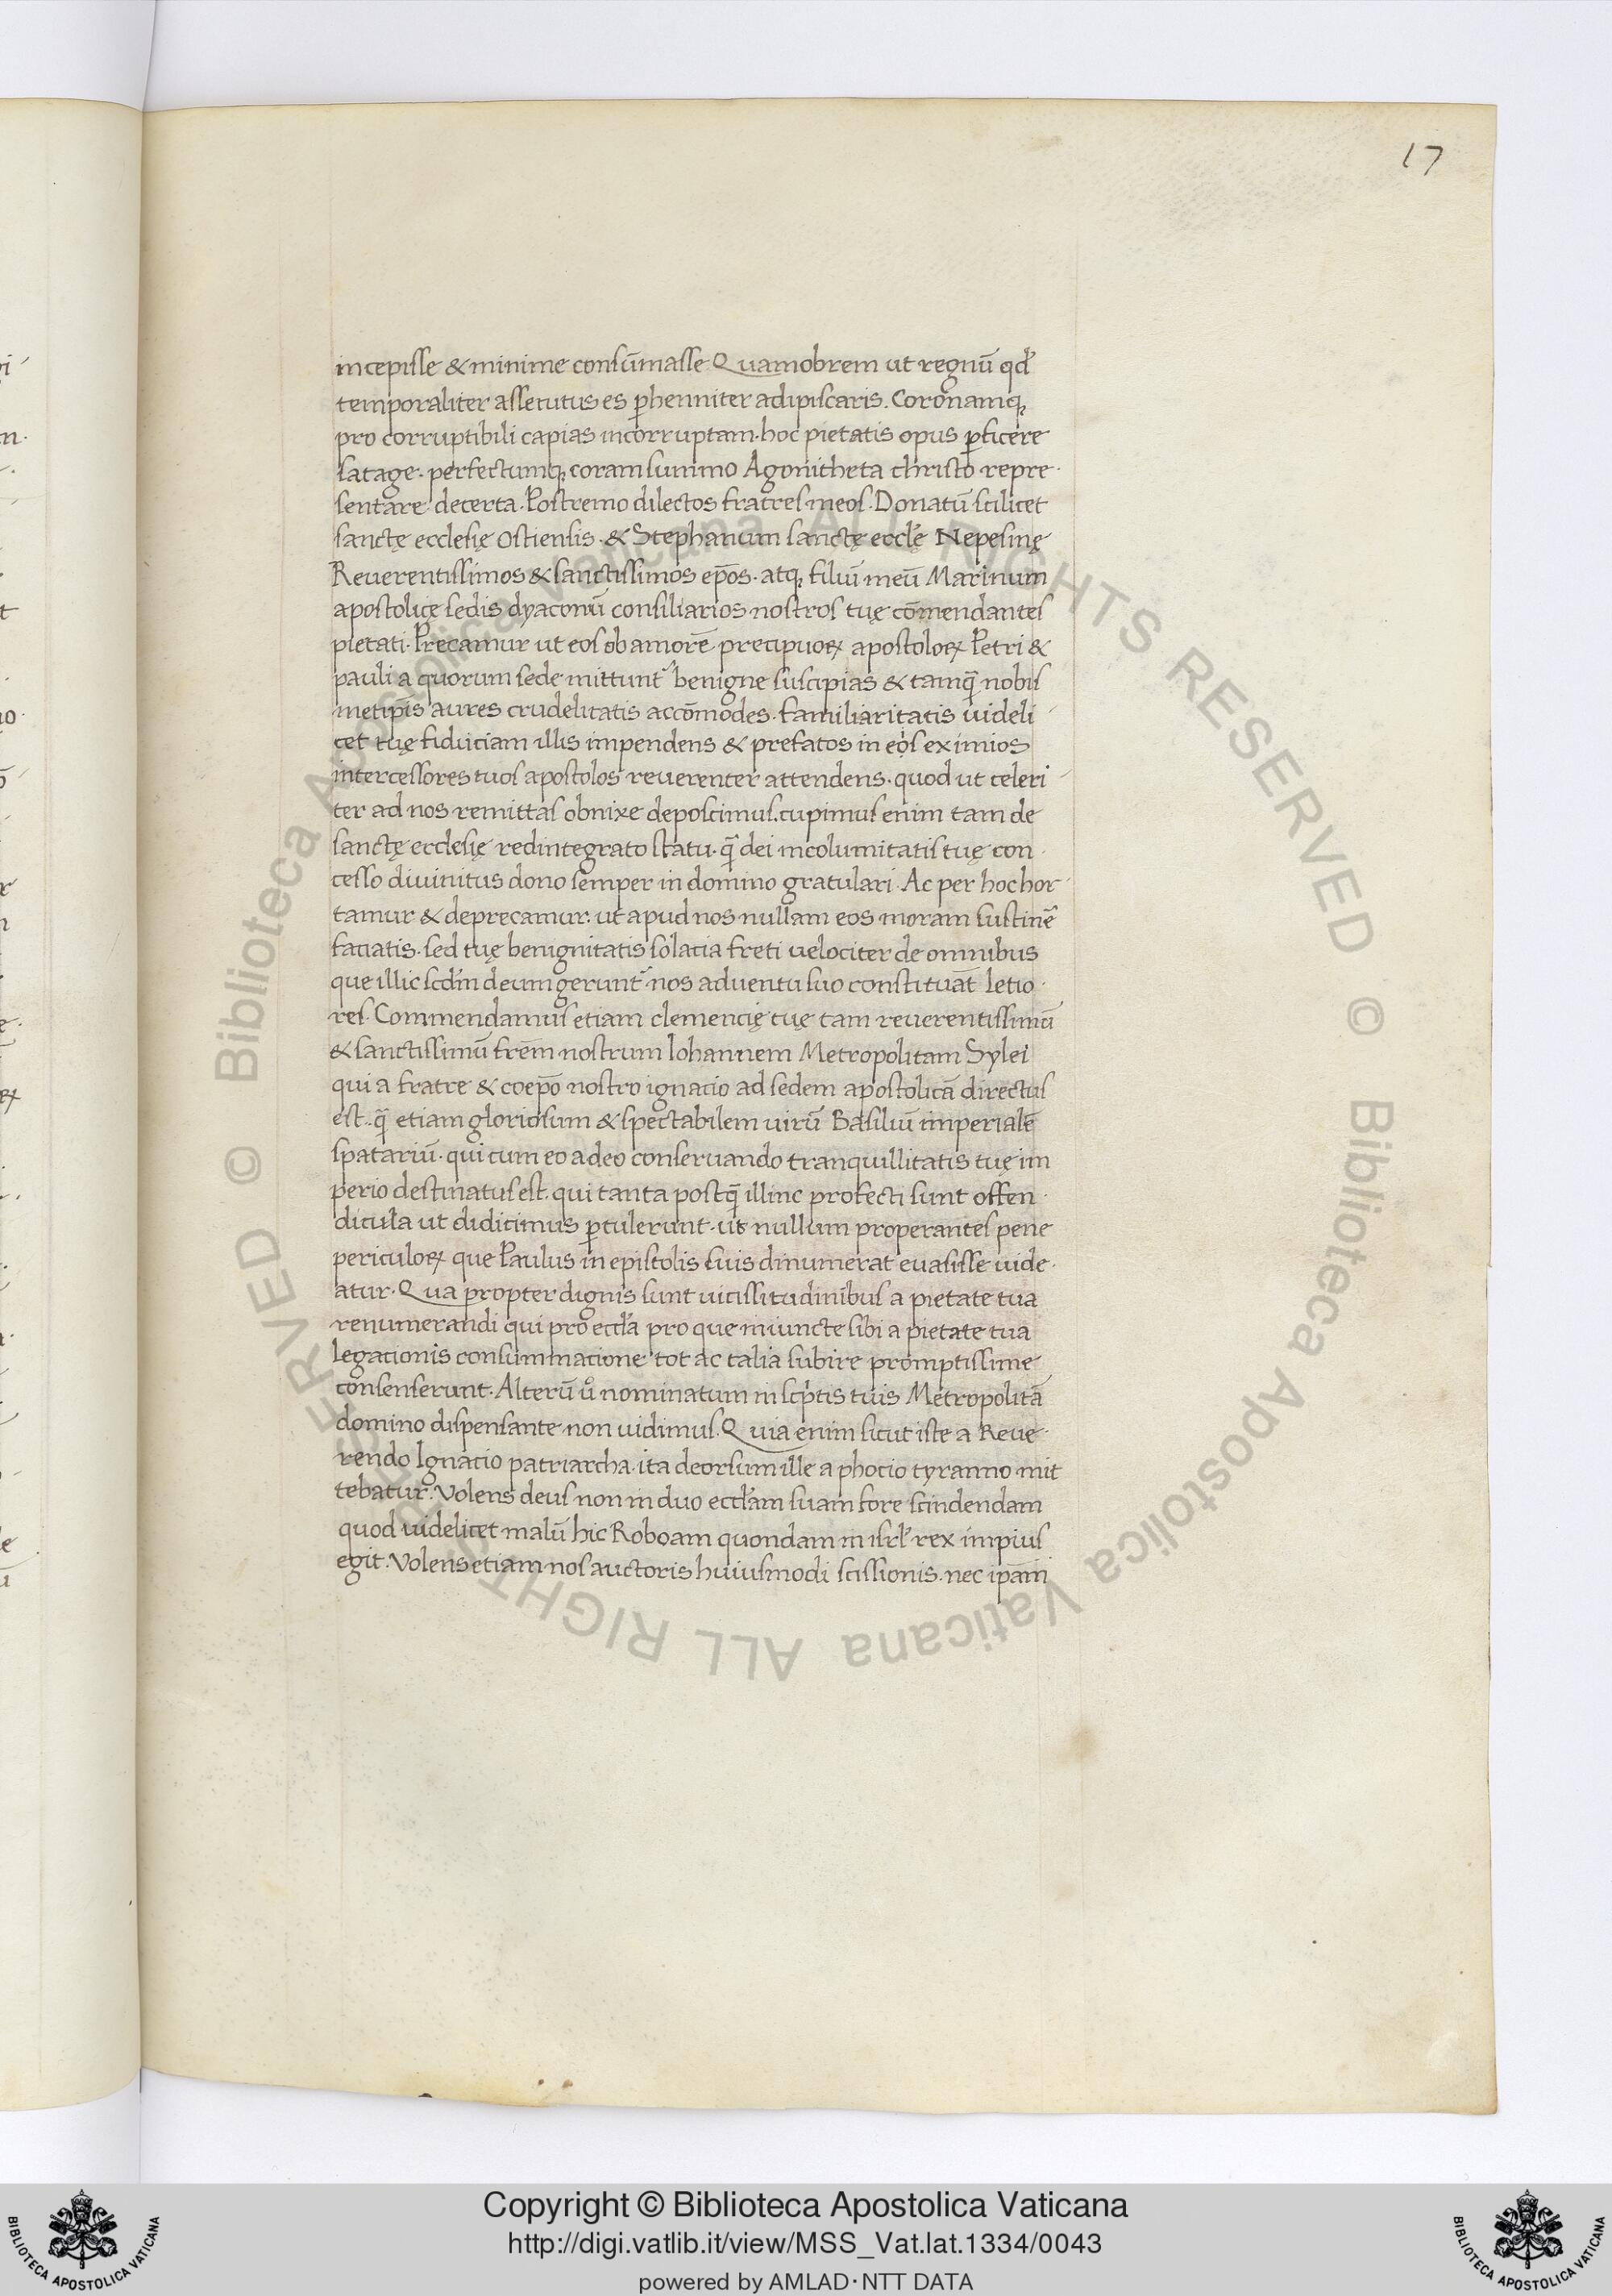 17
incepisse & minime consūmasse. Quamobrem ut regnū qd̕
temporaliter assecutus es p̱henniter adipiscaris. Coronamq;
pro corruptibili capias incorruptam. hoc pietatis opus p̱ficere
satage. perfectumq; coram summo Agonitheta christo repre-
sentare decerta. Postremo dilectos fratres meos. Donatū scilicet
sanctę ecclesię Ostiensis. & Stephanum sanctę eccl̕ę Nepesinę
Reuerentissimos & sanctissimos ep̄os. atq; filiū meū Marinum
apostolicę sedis dyaconū consiliarios nostros tuę cōmendantes
pietati. Precamur ut eos ob amorē precipuoꝝ apostoloꝝ Petri &
pauli a quorum sede mittunt᷑ benigne suscipias & tamq̄ nobis
metip̄is aures crudelitatis accōmodes. familiaritatis uideli-
cet tuę fiduciam illis impendens & prefatos in eos eximios
intercessores tuos apostolos reuerenter attendens. quod ut celeri-
ter ad nos remittas obnixe deposcimus. cupimus enim tam de
sanctę ecclesię redintegrato statu. q̄ dei incolumitatis tuę con-
cesso diuinitus dono semper in domino gratulari. Ac per hoc hor-
tamur & deprecamur. ut apud nos nullam eos moram sustinē
faciatis. sed tuę benignitatis solacia freti velociter de omnibus
que illic scd̕m deum gerunt᷑ nos aduentu suo constituāt letio-
res. Commendamus etiam clemencię tuę tam reuerentissimū
& sanctissimū frēm nostrum Iohannem Metropolitam Sylei
qui a fratre & coep̄o nostro ignacio ad sedem apostolicā directus
est. q̄ etiam gloriosum & spectabilem uirū Basiliū imperialē
spatariū. qui cum eo a deo conseruando tranquillitatis tuę im
perio destinatus est. qui tanta postq̄ illinc profecti sunt offen-
dicula ut didicimus p̱tulerunt. ut nullum properantes pene
periculoꝝ que Paulus in epistolis suis dinumerat euasisse uide-
atur. Qua propter dignis sunt uicissitudinibus a pietate tua
renumerandi qui pro eccl̕a pro que iniuncte sibi a pietate tua
legacionis consummacione tot ac talia subire promptissime
consenserunt. Alterū uͦ nominatum in scp̕tis tuis Metropolitā
domino dispensante non uidimus. Quia enim sicut iste a Reue-
rendo Ignacio patriarcha. ita deorsum ille a phocio tyranno mit
tebatur. Volens deus non in duo eccl̕am suam fore scindendam
quod uidelicet malū hic Roboam quondam in isrl̕ rex impius
egit. Volens etiam nos auctoris huiusmodi scissionis. nec ip̄am
© Biblioteca Apostolica Vaticana ALL RIGHTS RESERVED
© Biblioteca Apostolica Vaticana ALL RIGHTS RESERVED
Copyright © Biblioteca Apostolica Vaticana
http://digi.vatlib.it/view/MSS_Vat.lat.1334/0043
powered by AMLAD·NTT DATA
BIBLIOTECA APOSTOLICA VATICANA
BIBLIOTECA APOSTOLICA VATICANA